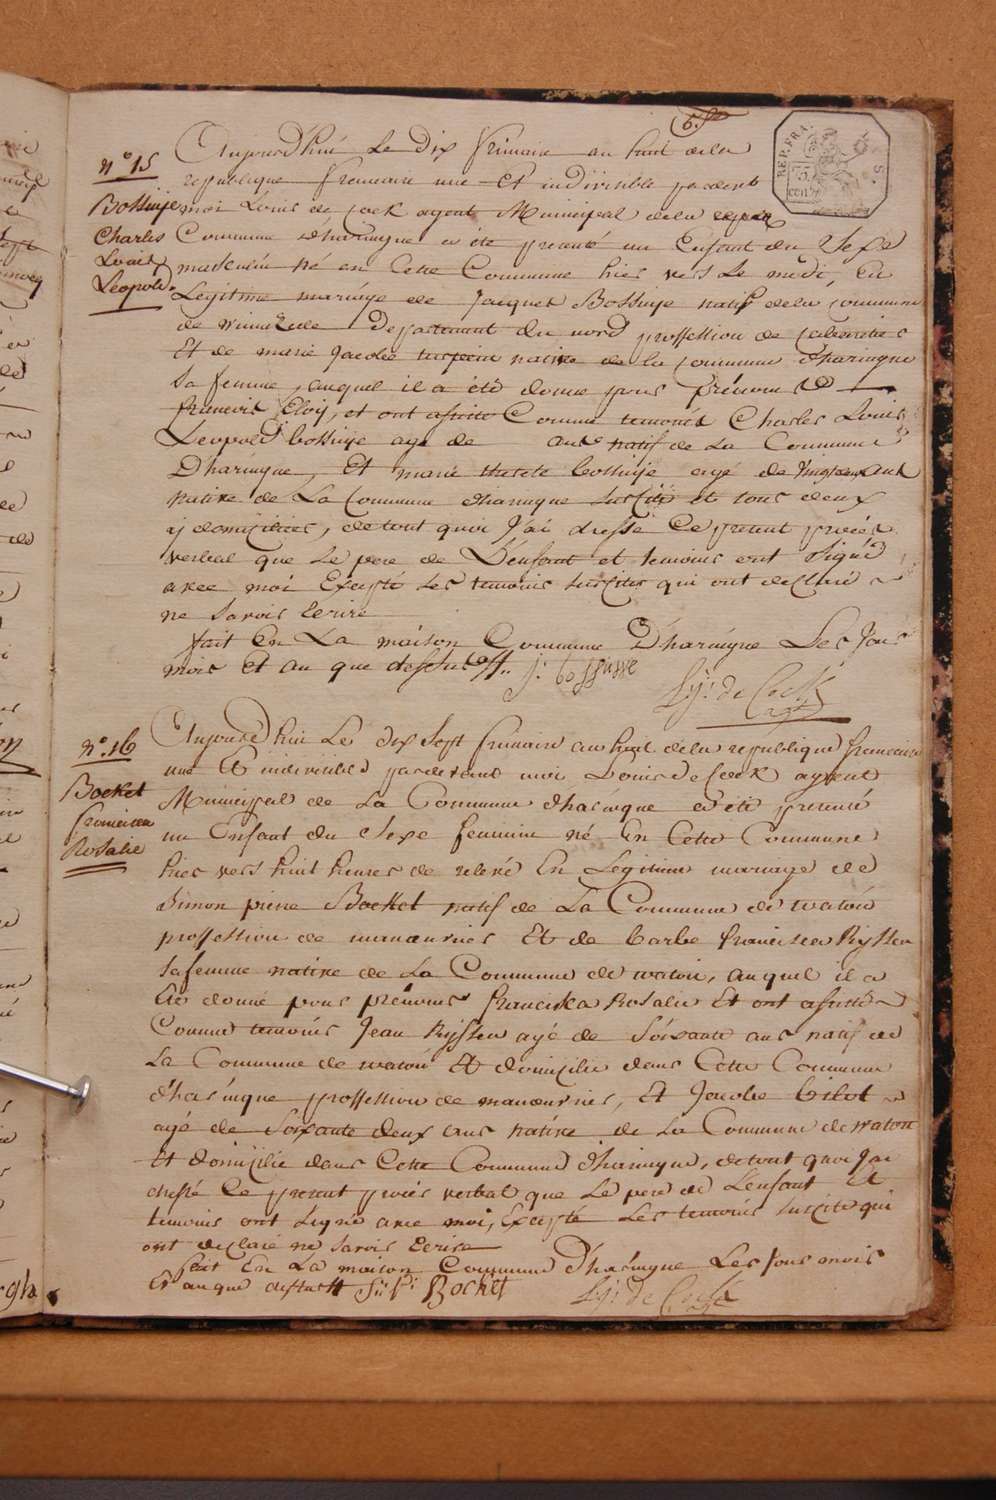 6.
REP. FRA.
5
cent.
S.
n° 15
Bossuije
Charles
Louis
Leopold.
Aujourd'hui Le dix frimaire an huit dela
republique francaise une Et indivisible pardevt
moi Louis de Cock agent Municipal dela
Commune dharingue a été presenté un Enfant du Sexe
masculin né en Cette Commune hier vers Le midi, En
Legitime mariage de Jacques Bossuije natif dela Commune
de departement du nord proffession de
Et de marie Jacobe native de la Commune dharingue
Sa femme, auquel il a été donné pour prénoms
francois Eloij, et ont assisté Comme temoins Charles Louis
Leopold bossuije agé de ans natif de La Commune
Dharingue, Et marie bossuije agé de vingt ans
native de La Commune dharingue Suscité et tous deux
ij domiciliés, de tout quoi J'ai dressé Ce present procès
verbal que Le pere de L'enfant et temoins ont Signé
avec moi Excepté Les temoins suscités qui ont declaré
ne Savoir Ecrire
fait En La maison Commune D'haringue Les Jour
mois Et an que dessus j: bossuwe
Lijs: de Cock
agt
n°. 16
Bocket
francisca
Rosalie
Aujourd'hui Le dix Sept frimaire an huit dela republique francaise
une Et indivisible pardevant moi Louis de Cock agent
Municipal de La Commune dharingue a été presenté
un Enfant du Sexe feminin né En Cette Commune
hier vers huit heures de relevé En Legitime mariage de
Simon pierre Bocket natif de La Commune de watou
proffession de manœuvrier Et de barbe francisca Rijssen
Safemme native de La Commune de watou, auquel il a
été donné pour prénoms franciska Rosalie Et ont assisté
Comme temoins Jean Rijssen agé de Soisante ans natif de
La Commune de watou Et domicilié dans Cette Commune
d'haringue proffession de manœuvrier, Et Jacobe
agé de Soixante deux ans native de La Commune de watou
Et domicilie dans Cette Commune d'haringue, de tout quoi J'ai
dressé Ce present procès verbal que Le pere de L'enfant Et
temoins ont Signé avec moi, Excepté Les temoins Suscité qui
ont declaré ne Savoir Ecrire
fait En La maison Commune D'haringue Les Jour mois
Et an que dessus Si: P: Bocket
Lijs: de Cock